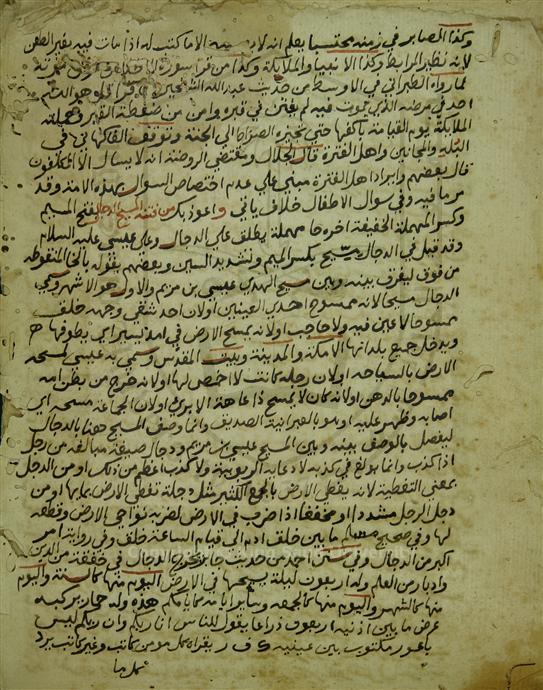 وكذا المصابر في زمنه محتسبا يعلم انه لا يصيبه الا ما كتب له اذا مات فيه بغير الطعن
لانه نظير المرابط وكذا الانبيا والملايكة وكذا من قرا سورة الاخلاص في مرض موته
لما رواه الطبراني في الاوسط من حديث عبد الله الشخير من قرا قل هو الله
احد في مرضه الذي يموت فيه لم يفتن في قبره وامن من ضغطة القبر وحملته
الملايكة يوم القيامة باكفها حتى تجيزه الصراط الى الجنة وتوقف الفاكهاني في
البله والمجانين واهل الفترة قال الجلال ومقتضى الروضة انه لا يسال الا المكلفون
قال بعضهم وايراد اهل الفترة مبني على عدم اختصاص السوال بهذه الامة وقد
مر ما فيه وفي سوال الاطفال خلاف ياتي واعوذ بك من فتنة المسيح الدجال بفتح الميم
وكسر المهملة الخفيفة اخره حا مهملة يطلق على الدجال وعلى عيسى عليه السلام
وقد قيل في الدجال مسيح بكسر الميم وتشديد السين وبعضهم يقوله بالخا المنقوطة
من فوق ليفرق بينه وبين مسيح الهدى عيسى بن مريم والاول هو الاشهر وسمي
الدجال مسيحا لانه ممسوح احدى العينين اولان احد شقي وجهه خلق
ممسوحا لا عين فيه ولا حاجب اولانه يمسح الارض في امد يسير اي يطوفها
ويدخل جميع بلدانها الا مكة والمدينة وبيت المقدس وسمي به عيسى لمسحه
الارض بالسياحة اولان رجله كانت لا اخمص لها اولانه خرج من بطن امه
ممسوحا بالدهن اولانه كان لا يمسح ذا عاهة الا بري اولان الجماعة مسحه اي
اصابه وظهر عليه اوهو بالعبرانية الصديق وانما وصف المسيح هنا بالدجال
ليفصل بالوصف بينه وبين المسيح عيسى بن مريم ودجال صيغة مبالغة من رجل
اذا كذب وانما بولغ في كذبه لادعايه الربوبية ولا كذب اعظم من ذلك او من الدجل
بمعنى التغطية لانه يغطي الارض بالجمع الكثير مثل دجلة تغطي الارض بمايها او من
دجل الرجل مشددا او مخففا اذا ضرب في الارض لضربه نواحي الارض وقطعه
لها وفي صحيح مسلم ما بين خلق ادم الى قيام الساعة خلق وفي رواية امر
اكبر من الدجال وفي احمد من حديث جابر يخرج الدجال في خفقة من الدين
وادبار من العلم وله اربعون ليلة يسيحها في الارض اليوم منها كالسنة واليوم
منها كالشهر واليوم منها كالجمعة وساير ايامه كايامكم هذه وله حمار يركبه
عرض ما بين اذنيه اربعون ذراعا يقول للناس انا ربكم وان ربكم ليس
باعور مكتوب بين عينيه ك ف ر يقراه كل مومن كاتب وغير كاتب يرد
كل ما